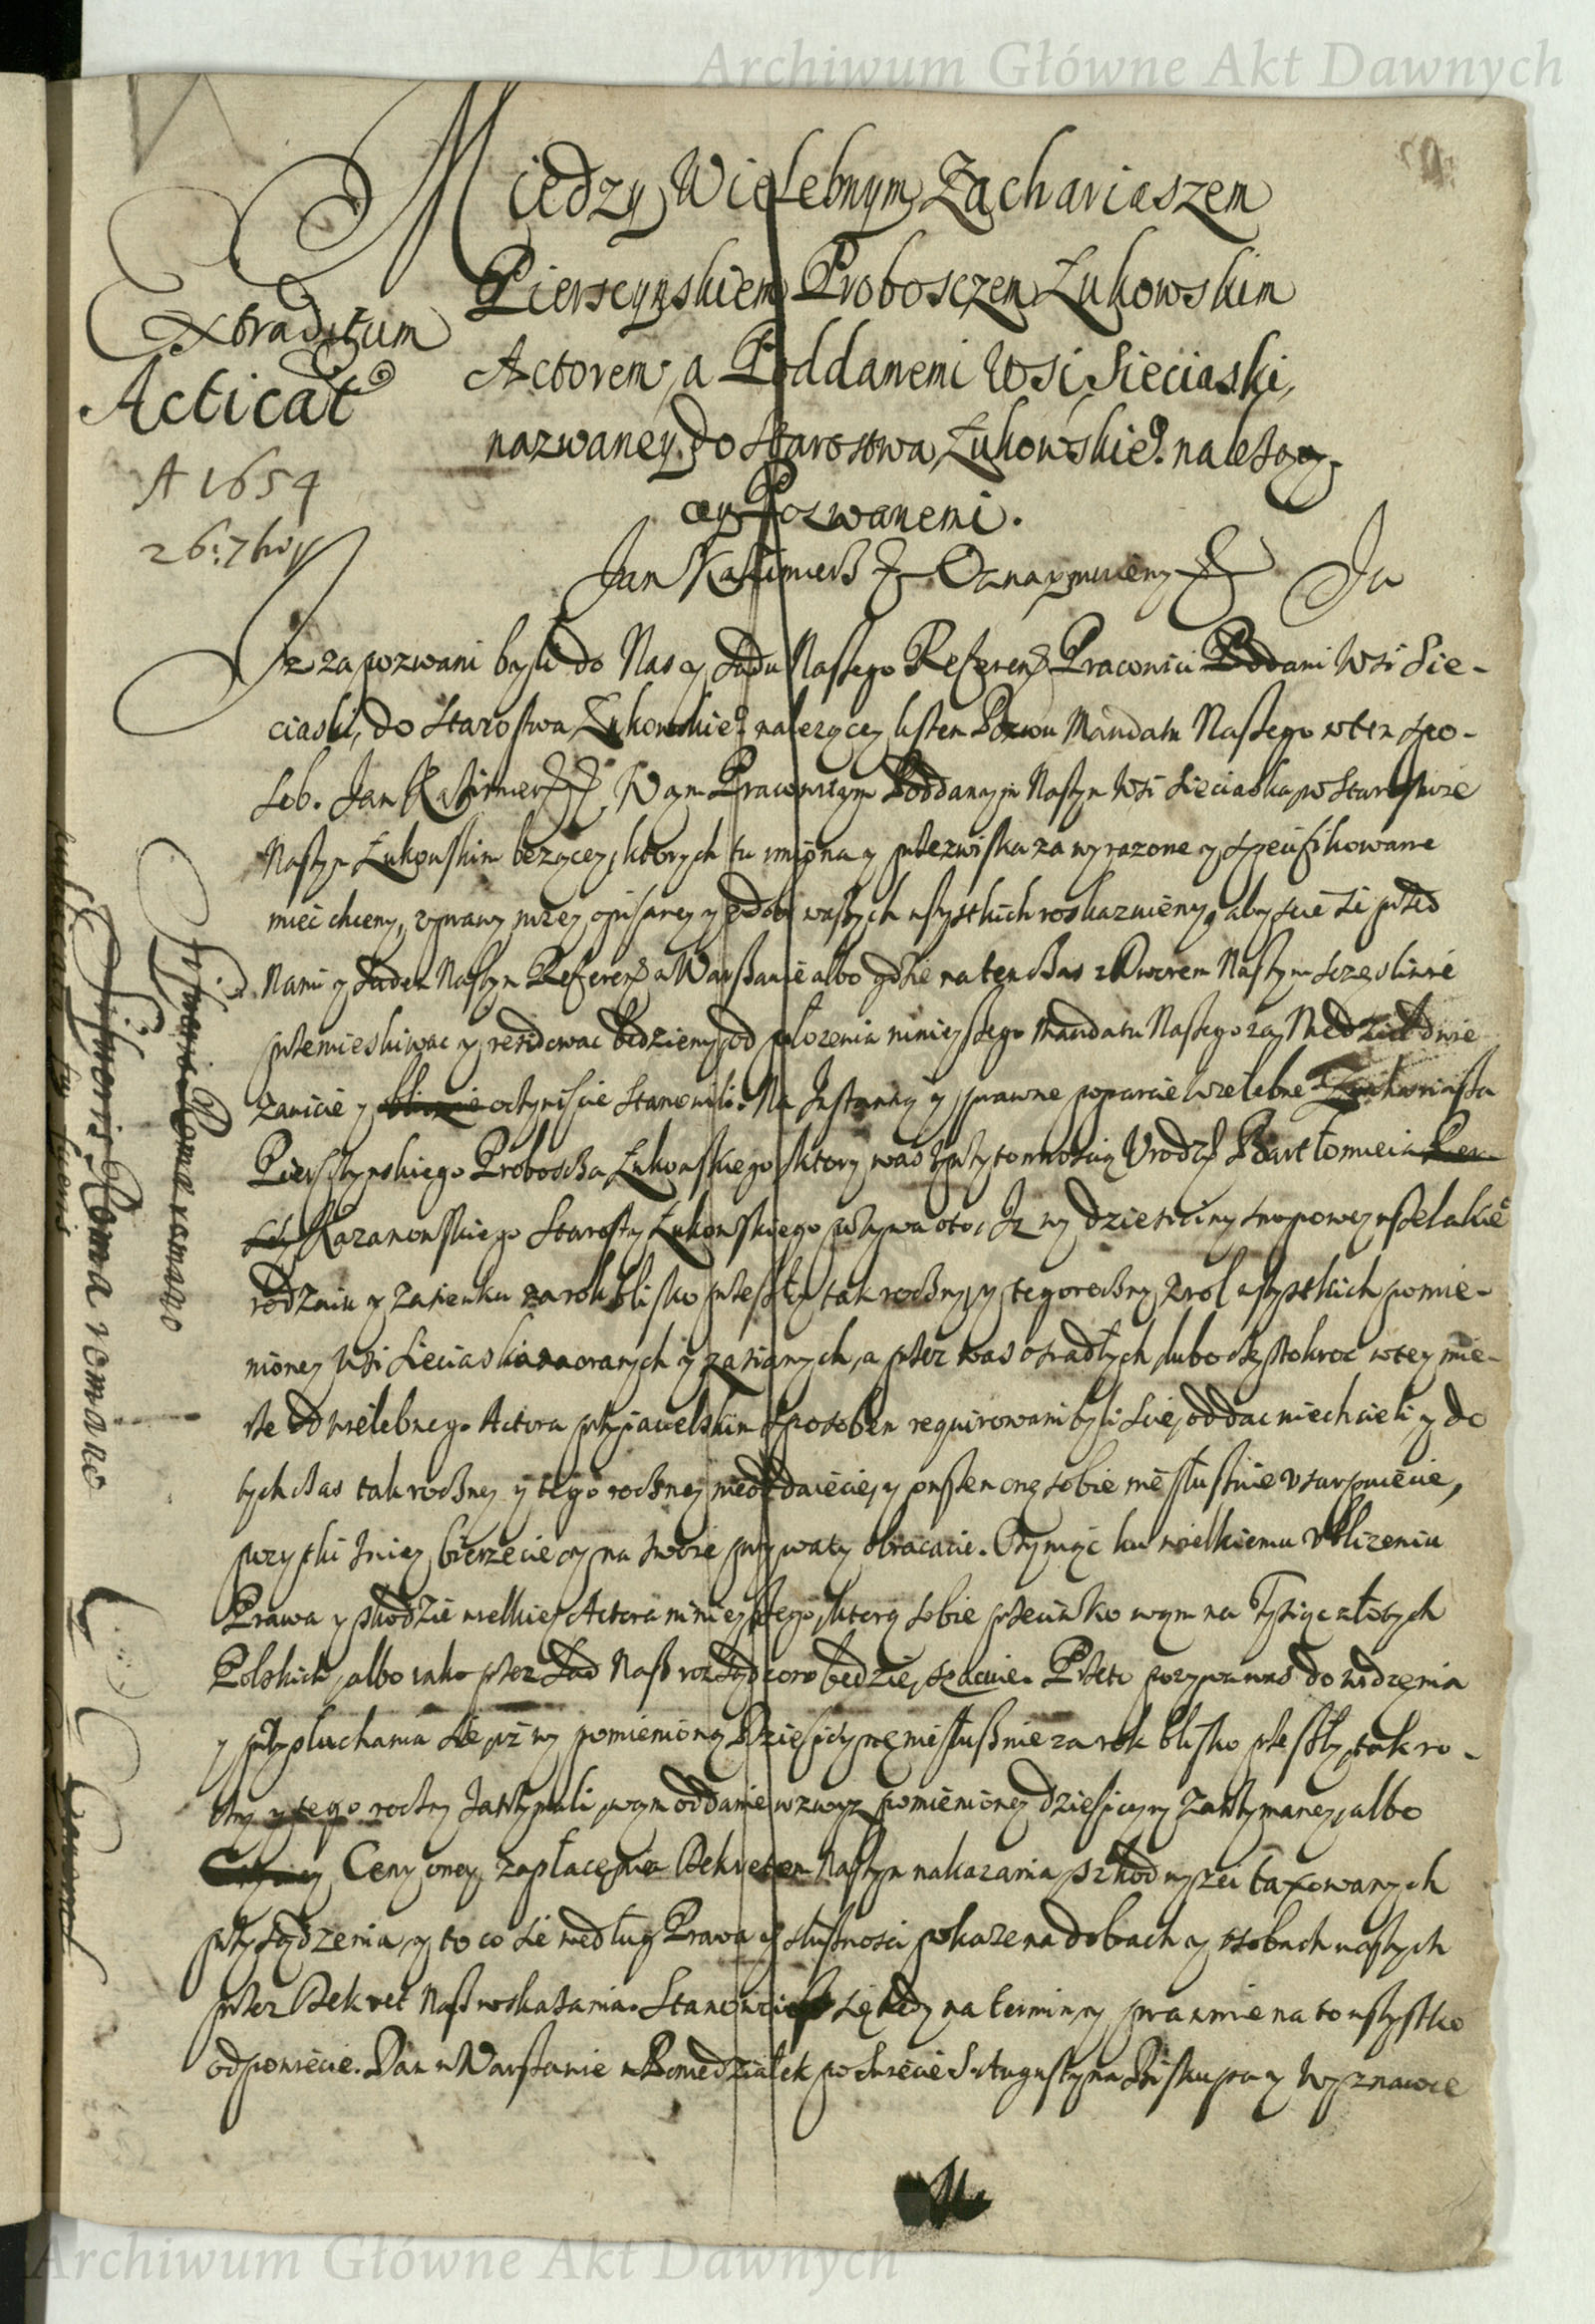 Archiwum Główne Akt Dawnych
Miedzy Wielebnym Zachariaszem
Pierscynskiem Proboszczem Łukowskim
Actorem, a Poddanemi Wsi Sieciaski,
nazwaney do Starostwa Łukowskieo. należąc
cey Pozwanemi.
Extraditum
Acticat
A 1654
26. 7bry
Jan Kazimierz Oznaymuiemy Ju
Iz zapozwani byli do Nas y Sądu Naszego Referen Pracowici Poddani Wsi Sie-
ciaski, do Starostwa Łukowskieo nalezącey listem Pozwu Mandatu Naszego w ten spo-
sob. Jan Kazimierz Wam Pracowitym Poddanym Naszym Wsi Sieciaska w Starostwie
Naszym Łukowskim bezącey, ktorych tu imiona y przezwiska za wyrazone y specifikowane
mieć chcemy, z prawy nizey opisaney y z dobr waszych wszystkich roskazuiemy, abyscie się przed
Nami y Sądem Naszym Referen w Warszawie albo gdzie na ten czas z Dworem Naszym sczęsliwie
przemieskiwac y residowac będziemy, od połozenia ninieyszego Mandatu Naszego za Niedziel dwie
zawicie y oczywiscie stanowili. Na Instantią y prawne poparcie Wielebne Zachariasza
Pierscynskiego Proboscza Łukowskiego, ktory was z przytomnoscią Urodz Bartłomieia
Kazanowskiego Starosty Łukowskiego pozywa oto, Iz wy dziesięciny snopowey wszelakie
rodzaiu y zasiewku za rok blisko przeszły tak roczny, y tegoroczny z rol wszystkich pomie-
nioney wsi Sieciaska zaoranych y zasianych, a przez was osiadłych, lubo częstokroc w tey mie-
rze od wielebnego Actora przyiacielskim sposobem requirowani byli scie, oddac niechcieli y do
tych czas tak roczney y tego roczney nieoddaiecie, y owszem onę sobie niesłusznie usurpuiecie,
pozytki z niey bierzecie y na swoie prywaty obracacie. Czyniąc ku wielkiemu ubliżeniu
Prawa y szkodzie wielkiey Actora ninieyszego, ktorą sobie przeciwko wam na Tysiąc złotych
Polskich, albo iako przez Sąd Nasz rozsądzono będzie, szacuie. Przeto pozywa was do widzenia
y przysłuchania się, iz wy pomienioną Dziesięcynę niesłusznie za rok blisko przeszły, tak ro-
czny y tego roczny zatrzymali, wam oddanie wzwyz pomienioney dziesięcyny zatrzymaney, albo
Ceny oney zapłacenia Dekretem Naszym nakazania, szkod wyzei taxowanych
przysądzenia, y to co się według Prawa y słusznosci pokaze na dobrach y osobach waszych
przez Dekret Nasz wskazania. Stanowcie się tedy na termin, y prawnie na to wszystko
odpowiecie. Dan w Warszawie w Poniedziałek po Swięcie S. Augustyna Biskupa y Wyznawce
Archiwum Główne Akt Dawnych